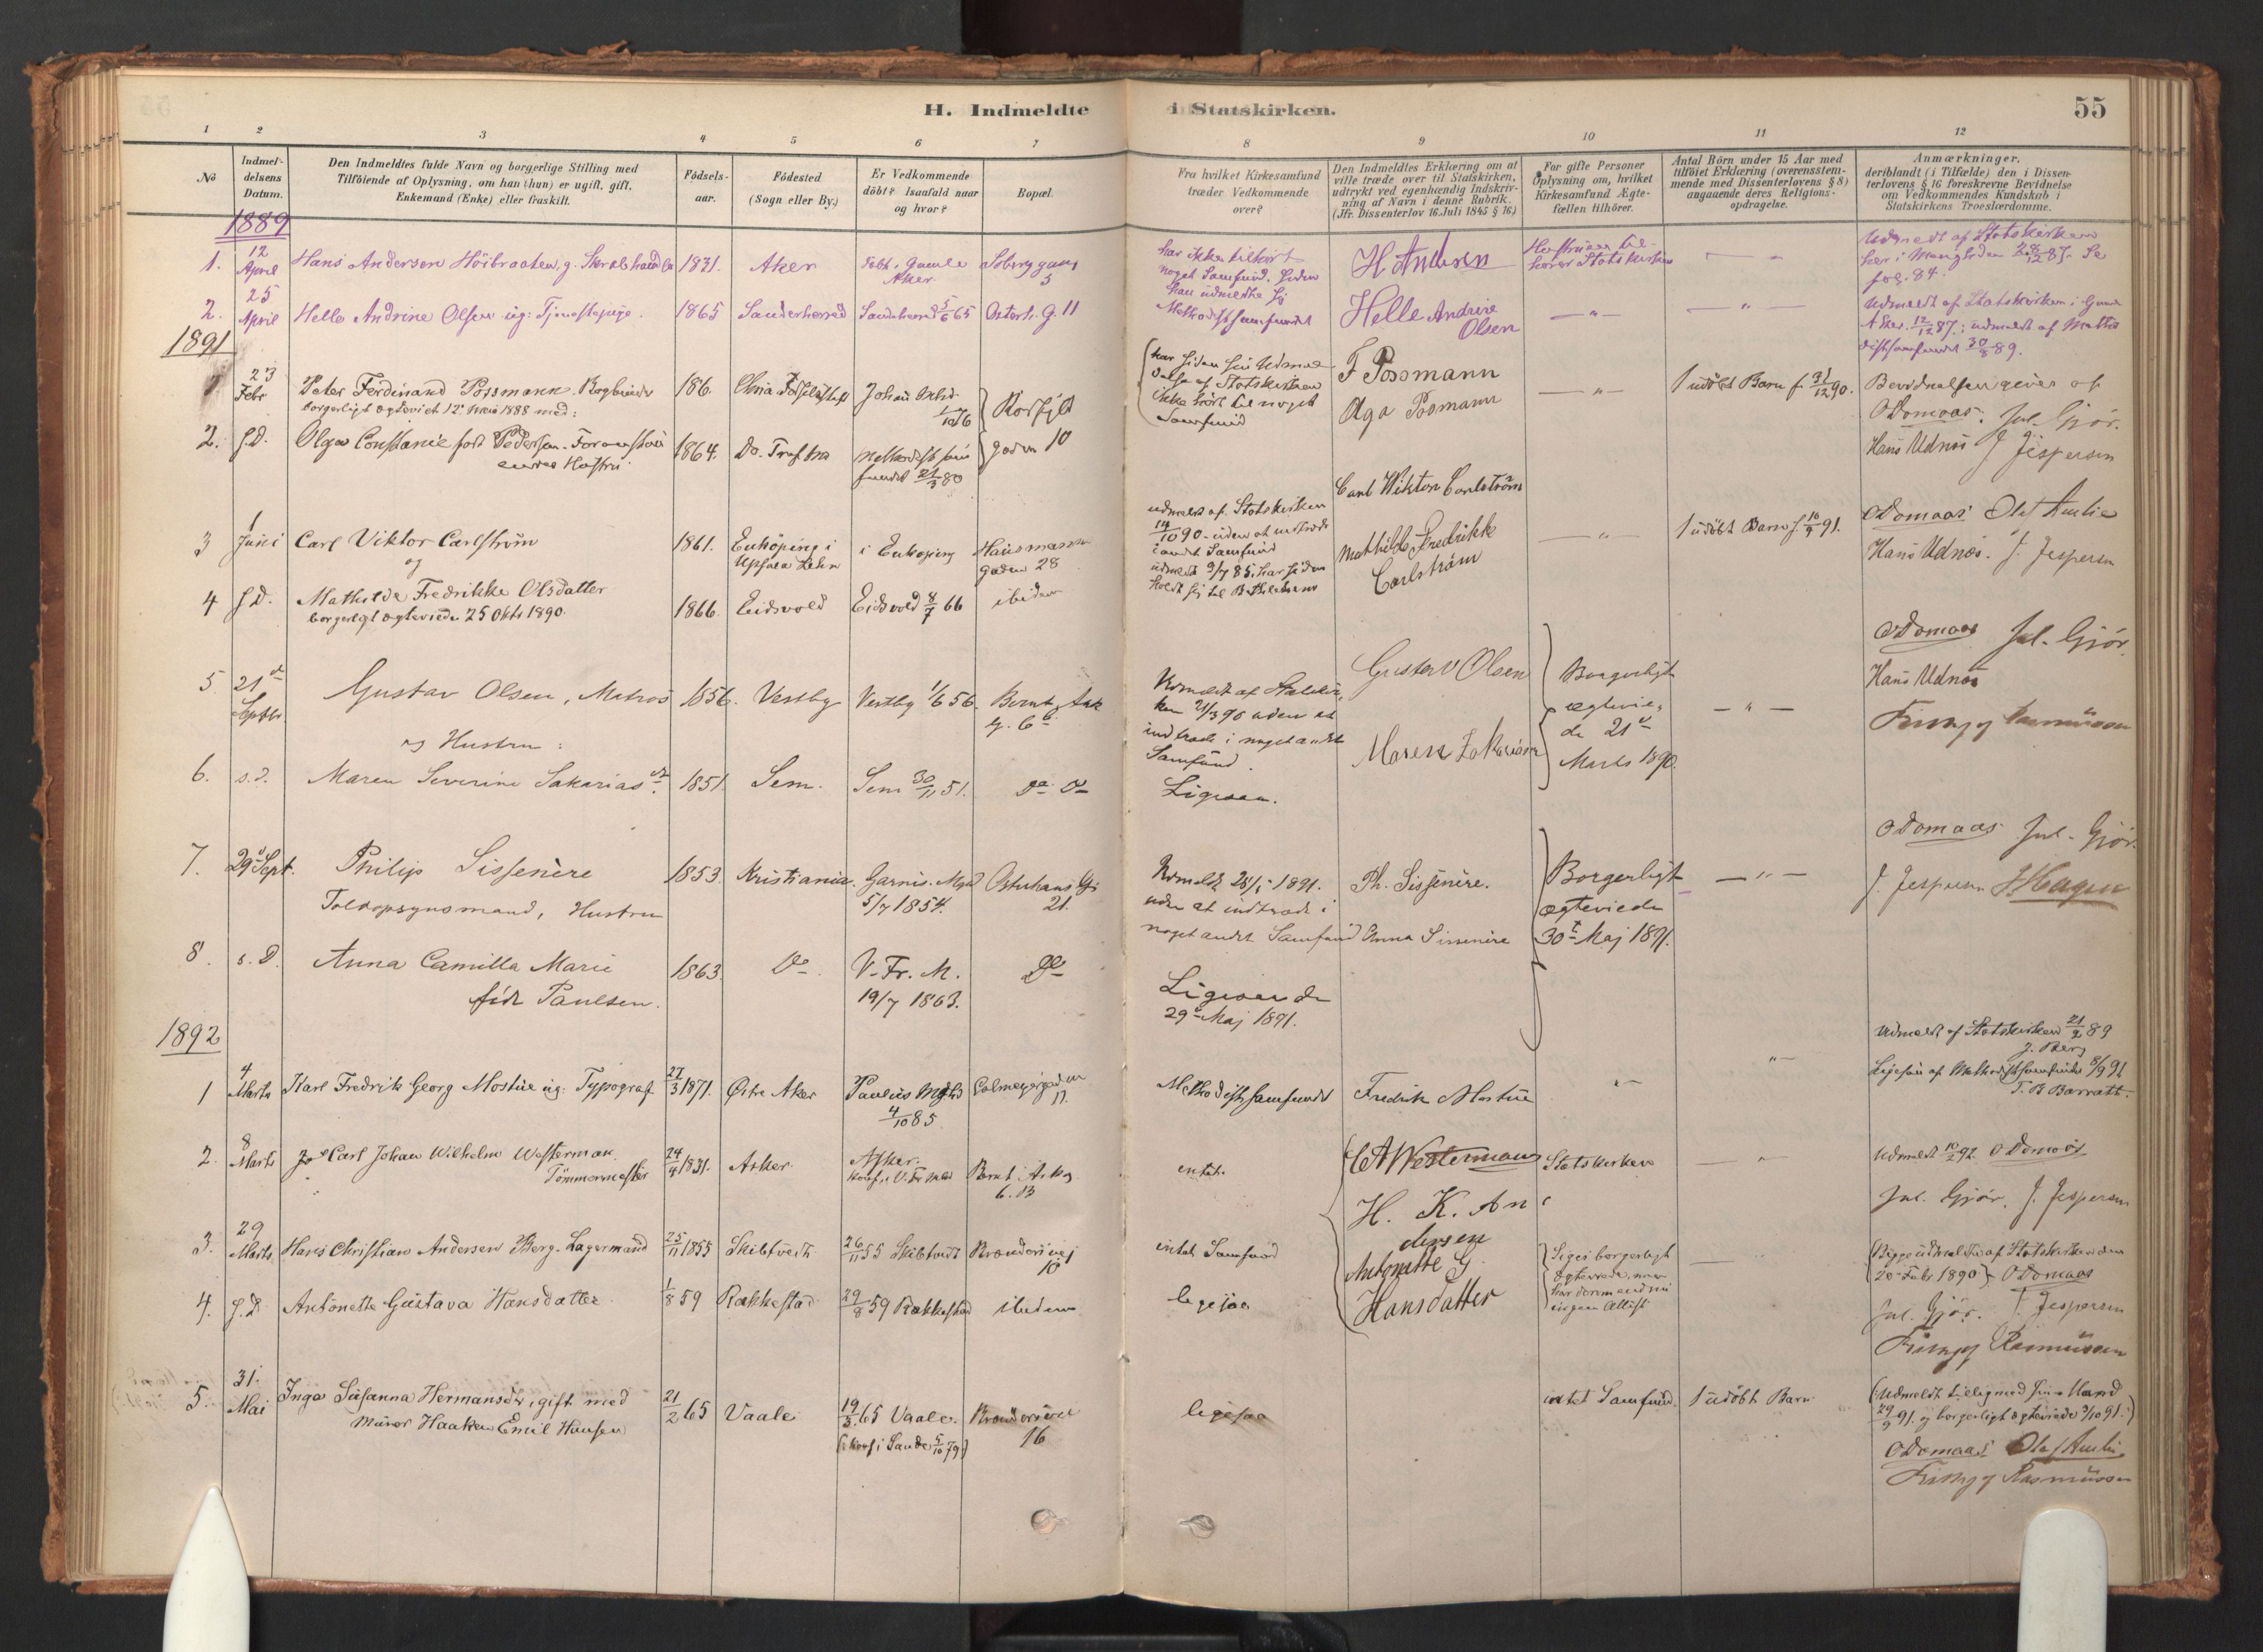 H. Indmeldte i Statskirken.
55
1 2 3 4 5 6 7 8 9 10 11 12
No
Indmeldelsens Datum.
Den Indmeldtes fulde Navn og borgerlige Stilling med
Tilföiende af Oplysning, om han (hun) er ugift, gift,
Enkemand (Enke) eller fraskilt.
Födsels-
aar.
Födested
(Sogn eller By.)
Er Vedkommende
döbt? Isaafald naar
og hvor?
Bopæl.
Fra hvilket Kirkesamfund
træder Vedkommende
over?
Den Indmeldtes Erklæring om at
ville træde over til Statskirken,
udtrykt ved egenhændig Indskriv-
ning af Navn i denne Rubrik.
(Jfr. Dissenterlov 16. Juli 1845 § 16.)
For gifte Personer
Oplysning om, hvilket
Kirkesamfund Ægte-
fællen tilhörer.
Antal Börn under 15 Aar med
tilföiet Erklæring (overensstem-
mende med Dissenterlovens § 8)
angaaende deres Religions-
opdragelse.
Anmærkninger,
deriblandt (i Tilfælde) den i Dissen-
terlovens § 16 foreskrevne Bevidnelse
om Vedkommendes Kundskab i
Statskirkens Troeslærdomme.
1889
1. 12 April Hans Andersen Höibraaten, g. 1831. Aker Aker 5
har ikke tilhört noget Samfund. Siden han udmeldte sig
H Andersen
Hustruen tilhører Statskirken
Udmeldt af Statskirken
fol. 84.
2. 25 April Helle Andrine Olsen ug. Tjenestepige. 1865 Sandeherred Sandeherred 5/6 65 Osterh. G. 11
Methodistsamfundet
Helle Andrine Olsen
Udmeldt af Statskirken i Gamle
Aker 12/12 87; udmeldt af Metho
distsamfundet 30/8 89.
1891
1 23 Febr Peter Ferdinand Possmann Bogbinder 186
borgerligt ægteviet 12 1888 med:
har siden sin Udmel
delse af Statskirken
ikke hört til noget
Samfund
F Possmann
Olga Posmann
1 udöbt Barn f. 31/12 90.
Bevidnelsen gives af
O Domaas. Jul. Gjör.
Hans Udnæs J Jespersen
2. s. D. Olga Constance født Pedersen. Foranstaaendes Hustru 1864. Do. Methodistsamfundet 21/3 80 gaden 10
3 1 Juni Carl Viktor Carlström 1861. Enköping i Upsala Lehn i Enköping Hausmanns gaden 28
og
udmeldt af Statskirken
14/10 90 uden at indtræde
i andet Samfund
Carl Wiktor Carlström
Mathilde Fredrikke
Carlström
1 udöbt Barn f. 91.
O Domaas Olaf Aulie
Hans Udnæs. J. Jespersen
4 s D. Mathilde Fredrikke Olsdatter 1866. Eidsvold Eidsvold 8/7 66 ibidem
borgerligt ægteviede 25 Okt 1890.
5. 21de Septbr. Gustav Olsen, Matros 1856. Vestby Vestby 1/6 56. Bernt Ank
g. 6 b
og Hustru:
Udmeldt af Statskir-
ken 21/3 90 uden at
indtræde i noget andet
Samfund.
Gustav Olsen
Maren Zakariasen
Borgerligt
ægtevie-
de 21de
Marts 1890.
O Domaas Jul. Gjör.
Hans Udnæs
Rasmussen
6. s. d. Maren Severine Sakariasdt. 1851. Sem. Sem 30/11 51. do do
Ligesaa.
7. 29de Sept. Philip Sissenère 1853. Kristiania. Garnis. Mgd 5/7 1854. 21.
Toldopsynsmand, Hustru
Udmeldt 28/5 1891.
uden at indtræde i
noget andet Samfund
Ph. Sissenère.
Anna Sissenère
Borgerligt
ægteviede
30te Maj 1891.
O Domaas Jul. Gjör.
J. Jespersen J Hagen
8. s. D. Anna Camilla Marie 1863. Do V. Fr. M. 19/7 1863. Do
født Paulsen.
Ligesaa den
29de Maj 1891.
1892
1 4 Marts Karl Fredrik Georg Mostue ug. Typograf 27/3 1871. Østre Aker Paulus Mghd 4/10 85 Calmeyergaden 11.
Methodistsamfundet Fredrik Mostue
Udmeldt af Statskirken 21/2 89
J. Berg
Ligesaa af Methodistsamfundet 8/9 91
T. B Barratt.
2. 8 Marts Carl Johan Wilhelm Westerman. 24/4 1831. Asker Asker.
Tömmermester
6. B
intet. C A Westermann Statskirken
Udmeldt 92 O Domaas
Jul. Gjör. J. Jespersen
3. 29 Marts Hans Christian Andersen Berg. Lagermand 25/11 1855 Skibtvedt 26/11 55 Skibtvedt 10
intet Samfund H. K. An
dersen
Bægge udmeldte af Statskirken den
20 Febr 1890. O Domaas
4. s. D. Antonette Gustava Hansdatter 1/8 59 Rakkestad 29/8 59 Rakkestad ibidem
ligesaa
Antonette G.
Hansdatter
Siges borgerligt
ægteviede, men
Jul. Gjör. J. Jespersen
Rasmussen
5. 31. Mai Inga Susanna Hermansdtr, gift med 21/2 65 Vaale 19/3 65 Vaale. 16
Murer Haaken Emil Hansen (konf. i Sande 5/10 79)
ligesaa
intet Samfund. 1 udöbt Barn
(Udmeldt tillige med sin Mand
29/9 91. og borgerligt ægteviede 3/10 91.)
O Domaas Olaf Aulie.
Rasmussen